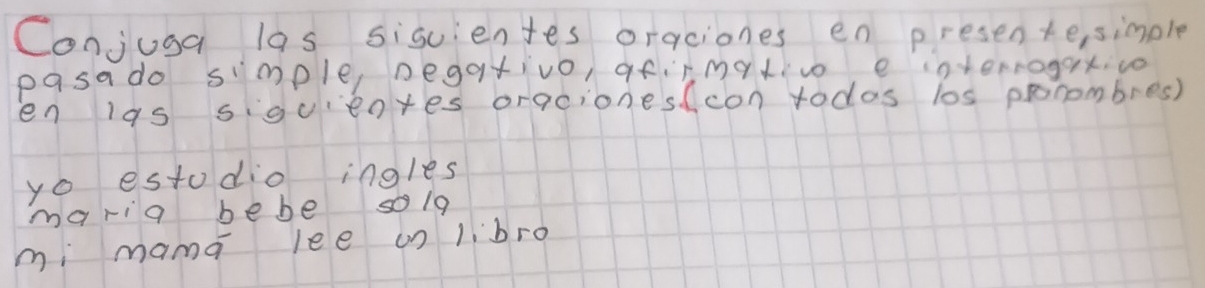 Conjuga las siguientes oraciones en presente, simple
pasado simple, negativo, afirmativo e interrogativo
en las siguientes oraciones (con todos los pronombres)
yo estudio ingles
maria bebe sola
mi mamá lee un libro